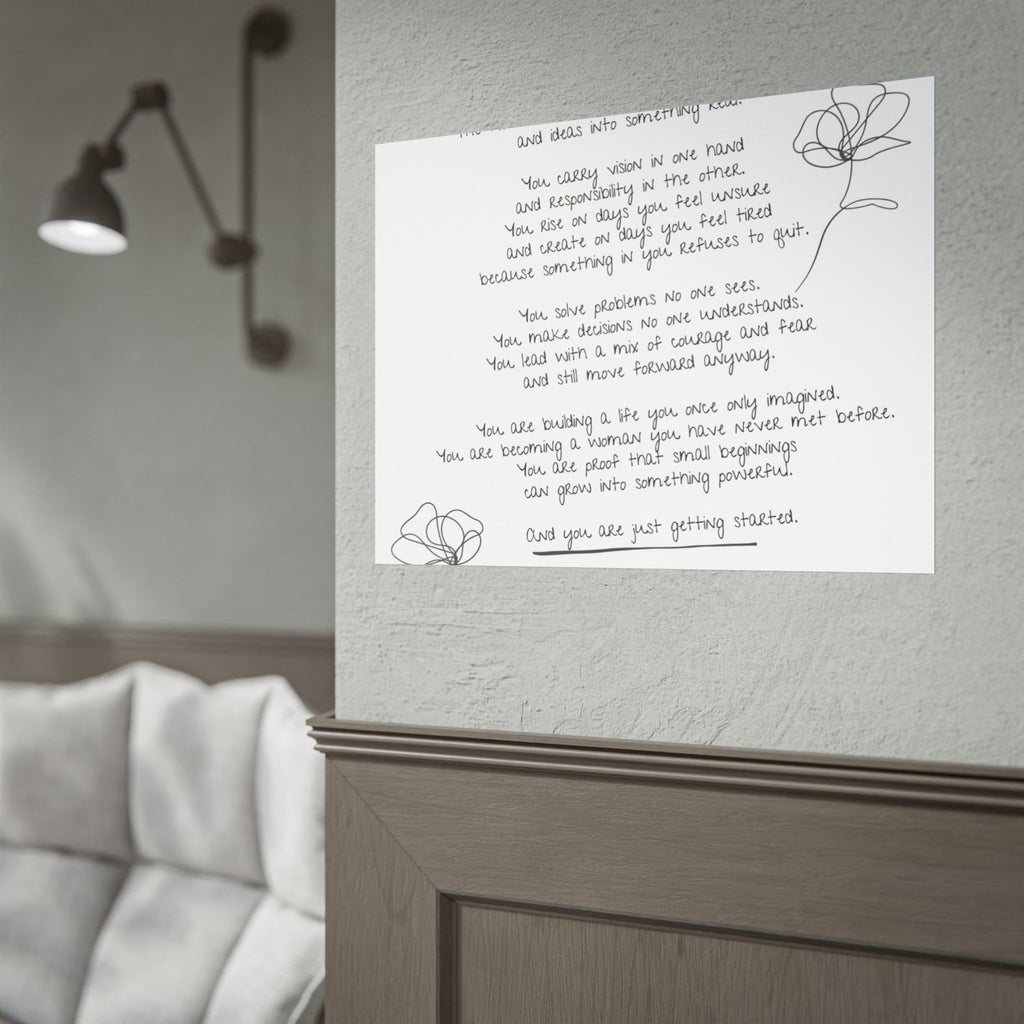 and ideas into something real.
You carry vision in one hand
and responsibility in the other.
You rise on days you feel unsure
and create on days you feel tired
because something in you refuses to quit.
You solve problems no one sees.
You make decisions no one understands.
You lead with a mix of courage and fear
and still move forward anyway.
You are building a life you once only imagined.
You are becoming a woman you have never met before.
You are proof that small beginnings
can grow into something powerful.
And you are just getting started.